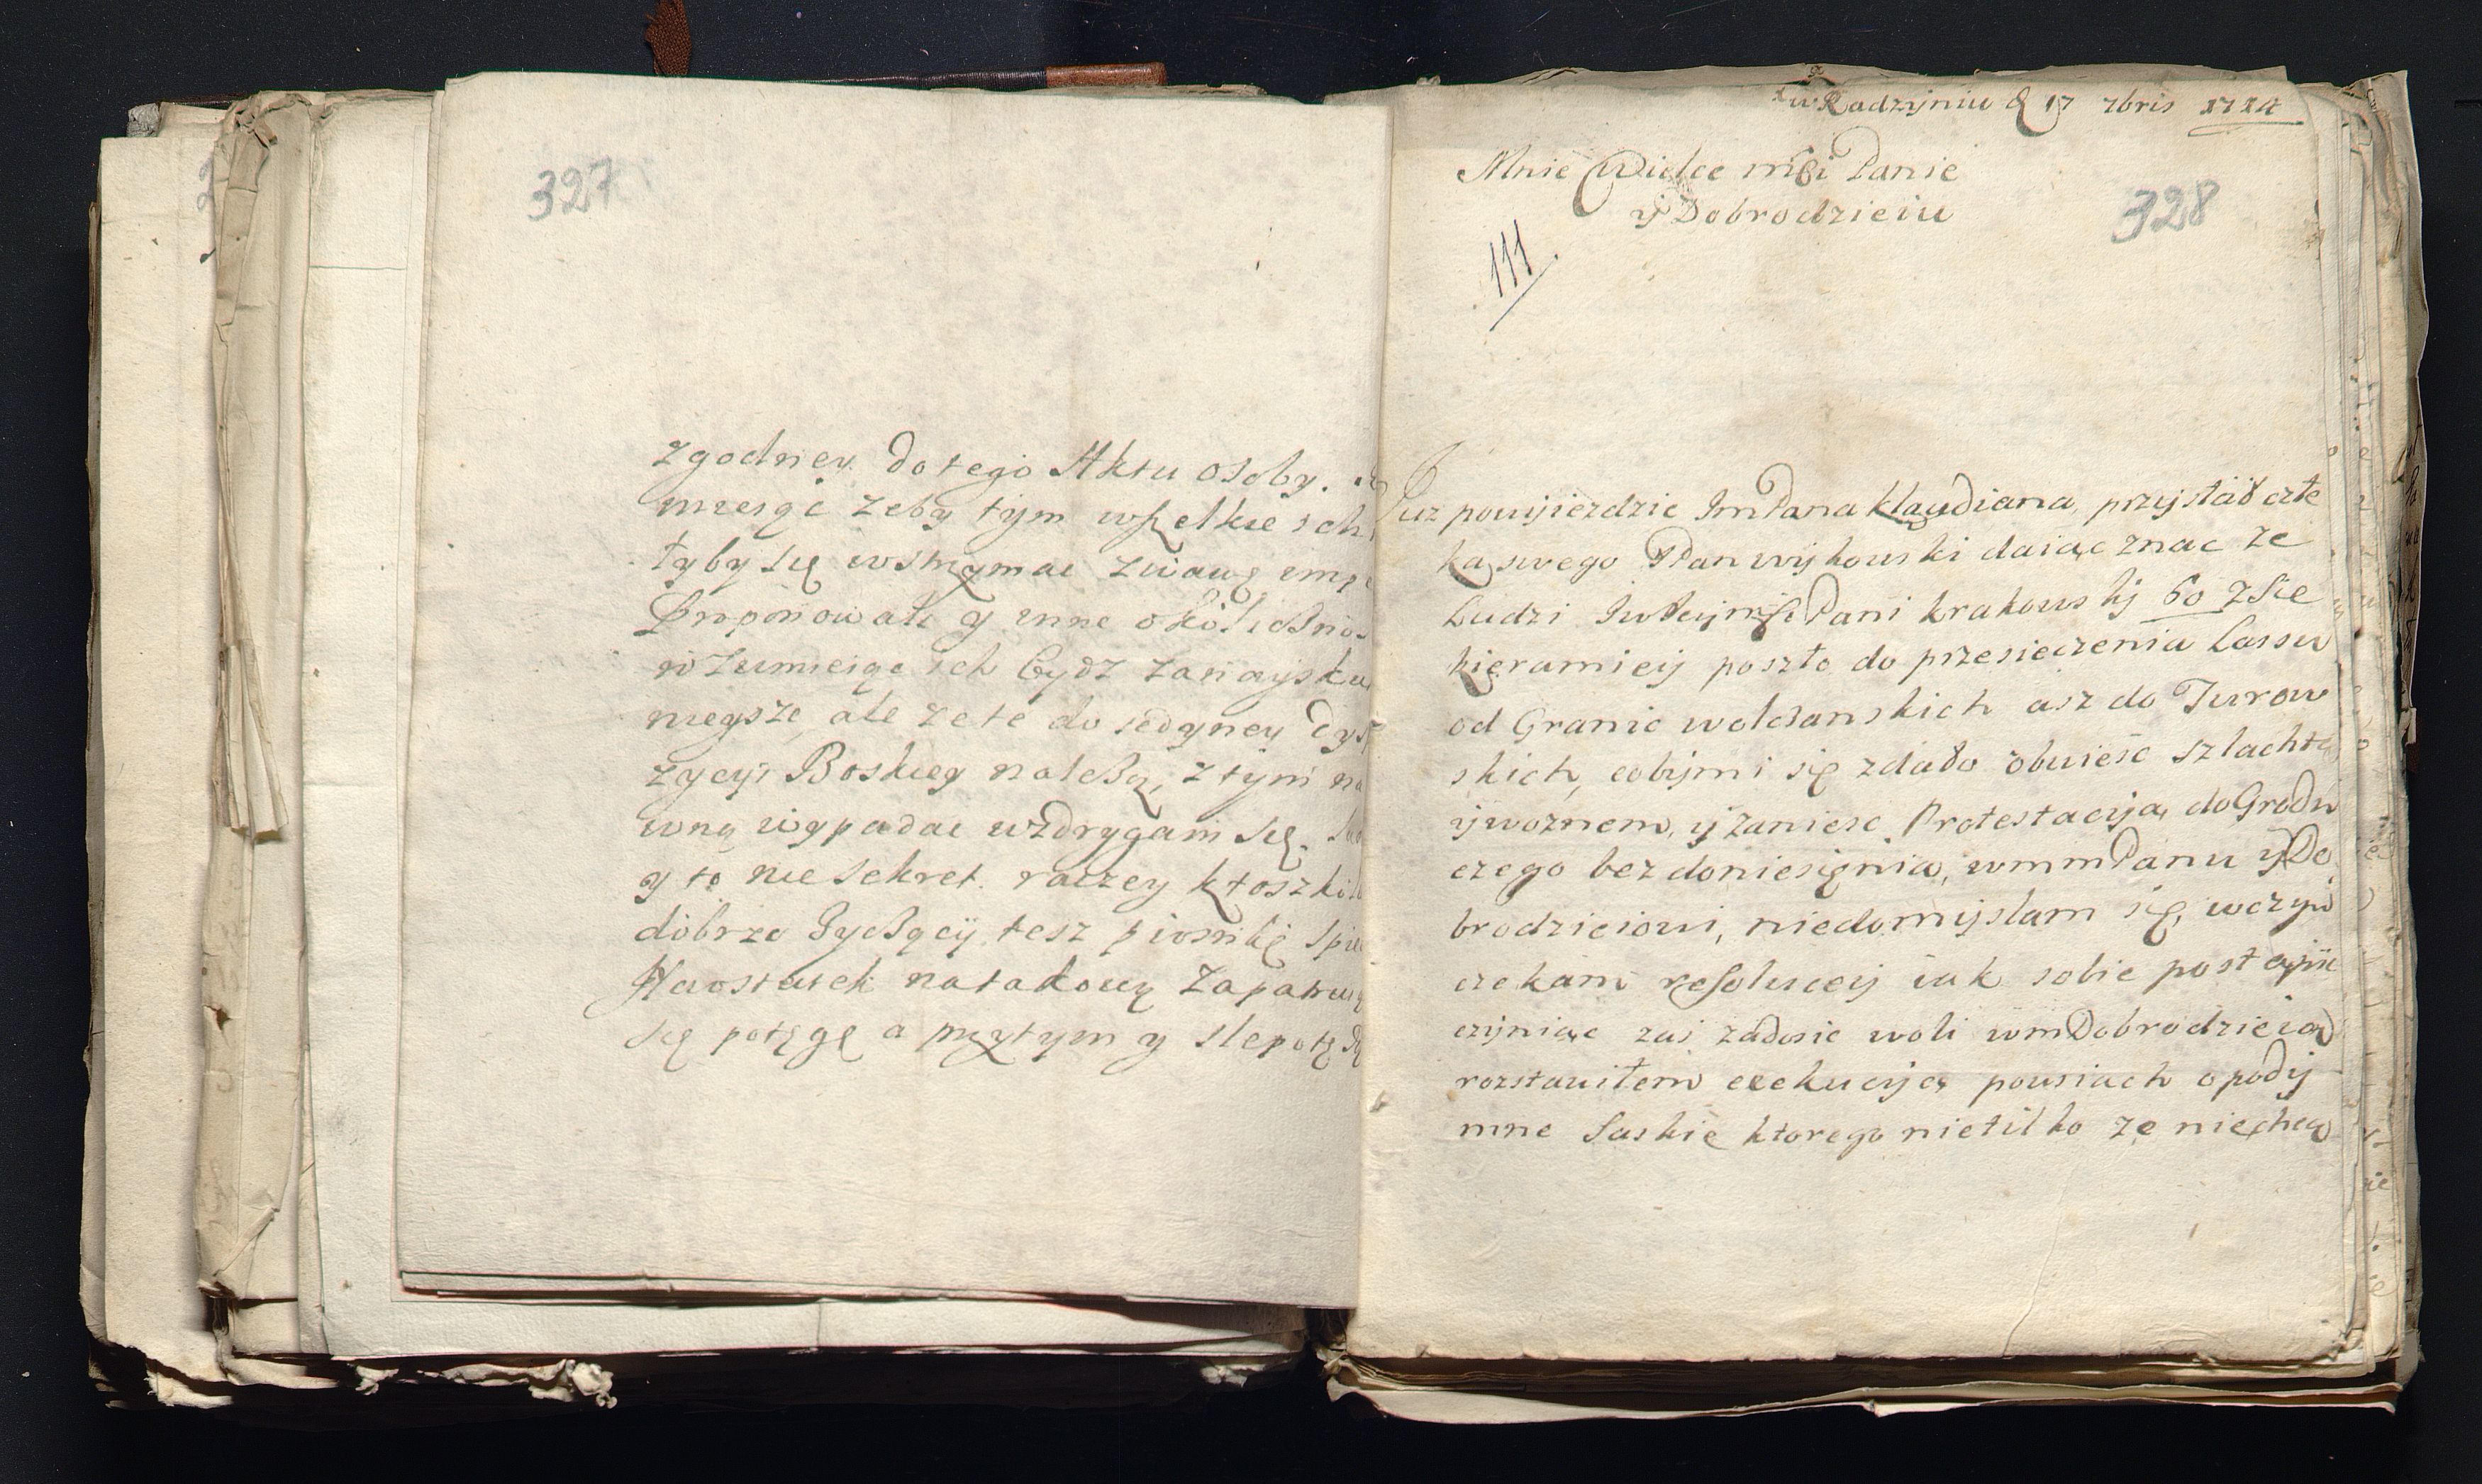 327
zgodney do tego Aktu osoby.
mieigc zeby tym wszelkie ich
tyby się wstrzymac zwawg imp
Proponowali y inne okolicznos
rozumieigc ich bydz zanayskut
nieysze, ale ze te do iedyney dys
zycyi Boskiey nalezą, z tym na
wną wypadac wzdrygam się.
y to nie sekret. raczey ktosz
dobrze zyczący tesz piosnkę spie
na takową zapatruię
się potęgę a przytym y slepotę
w Radzyniu d 17 7bris 1724
Mnie Wielce mći Panie
y Dobrodzieiu
328
111
Juz powyiezdzie Im Pana Klaudiana, przysłał człe
ka swego Pan Wykowski daiąc znac ze
ludzi Pani krakowsky 60 z Sie
kieramiey poszło do przesieczenia Lassu
od Granic wolosanskich asz do Turow
skich, cobymi się zdało obwiesc szlachtą
ywoznem, y zaniesc Protestacyją do Grodu
czego bez doniesięnia, wmmPanu y Do
brodzieiowi, niedomyslam się, wczym
czekam resolucey iak sobie postąpic
czyniąc zas zadosic woli wmDobrodzieia
rozstawiłem exekucyją powsiach o pody
mne Saskie ktorego nietilko ze niechcą